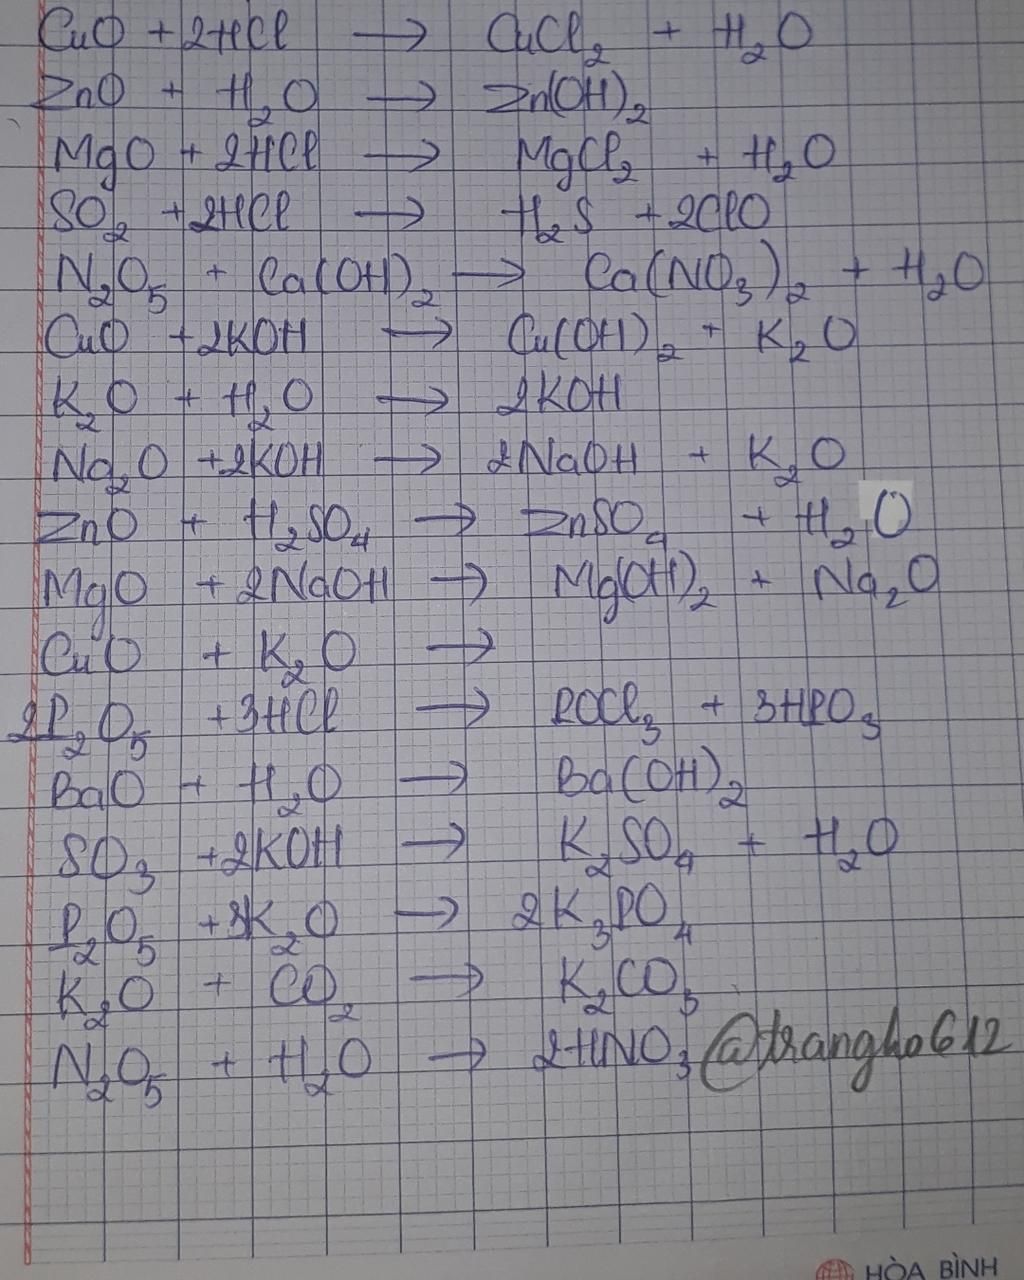 CuO + 2HCl → CuCl₂ + H₂O
ZnO + H₂O → Zn(OH)₂
MgO + 2HCl → MgCl₂ + H₂O
SO₂ + 2HCl → H₂S + 2ClO
N₂O₅ + Ca(OH)₂ → Ca(NO₃)₂ + H₂O
CuO + 2KOH → Cu(OH)₂ + K₂O
K₂O + H₂O → 2KOH
Na₂O + 2KOH → 2NaOH + K₂O
ZnO + H₂SO₄ → ZnSO₄ + H₂O
MgO + 2NaOH → Mg(OH)₂ + Na₂O
CuO + K₂O →
2P₂O₅ + 3HCl → POCl₃ + 3HPO₃
BaO + H₂O → Ba(OH)₂
SO₃ + 2KOH → K₂SO₄ + H₂O
P₂O₅ + 3K₂O → 2K₃PO₄
K₂O + CO₂ → K₂CO₃
N₂O₅ + H₂O → 2HNO₃ @trangho612
HÒA BÌNH